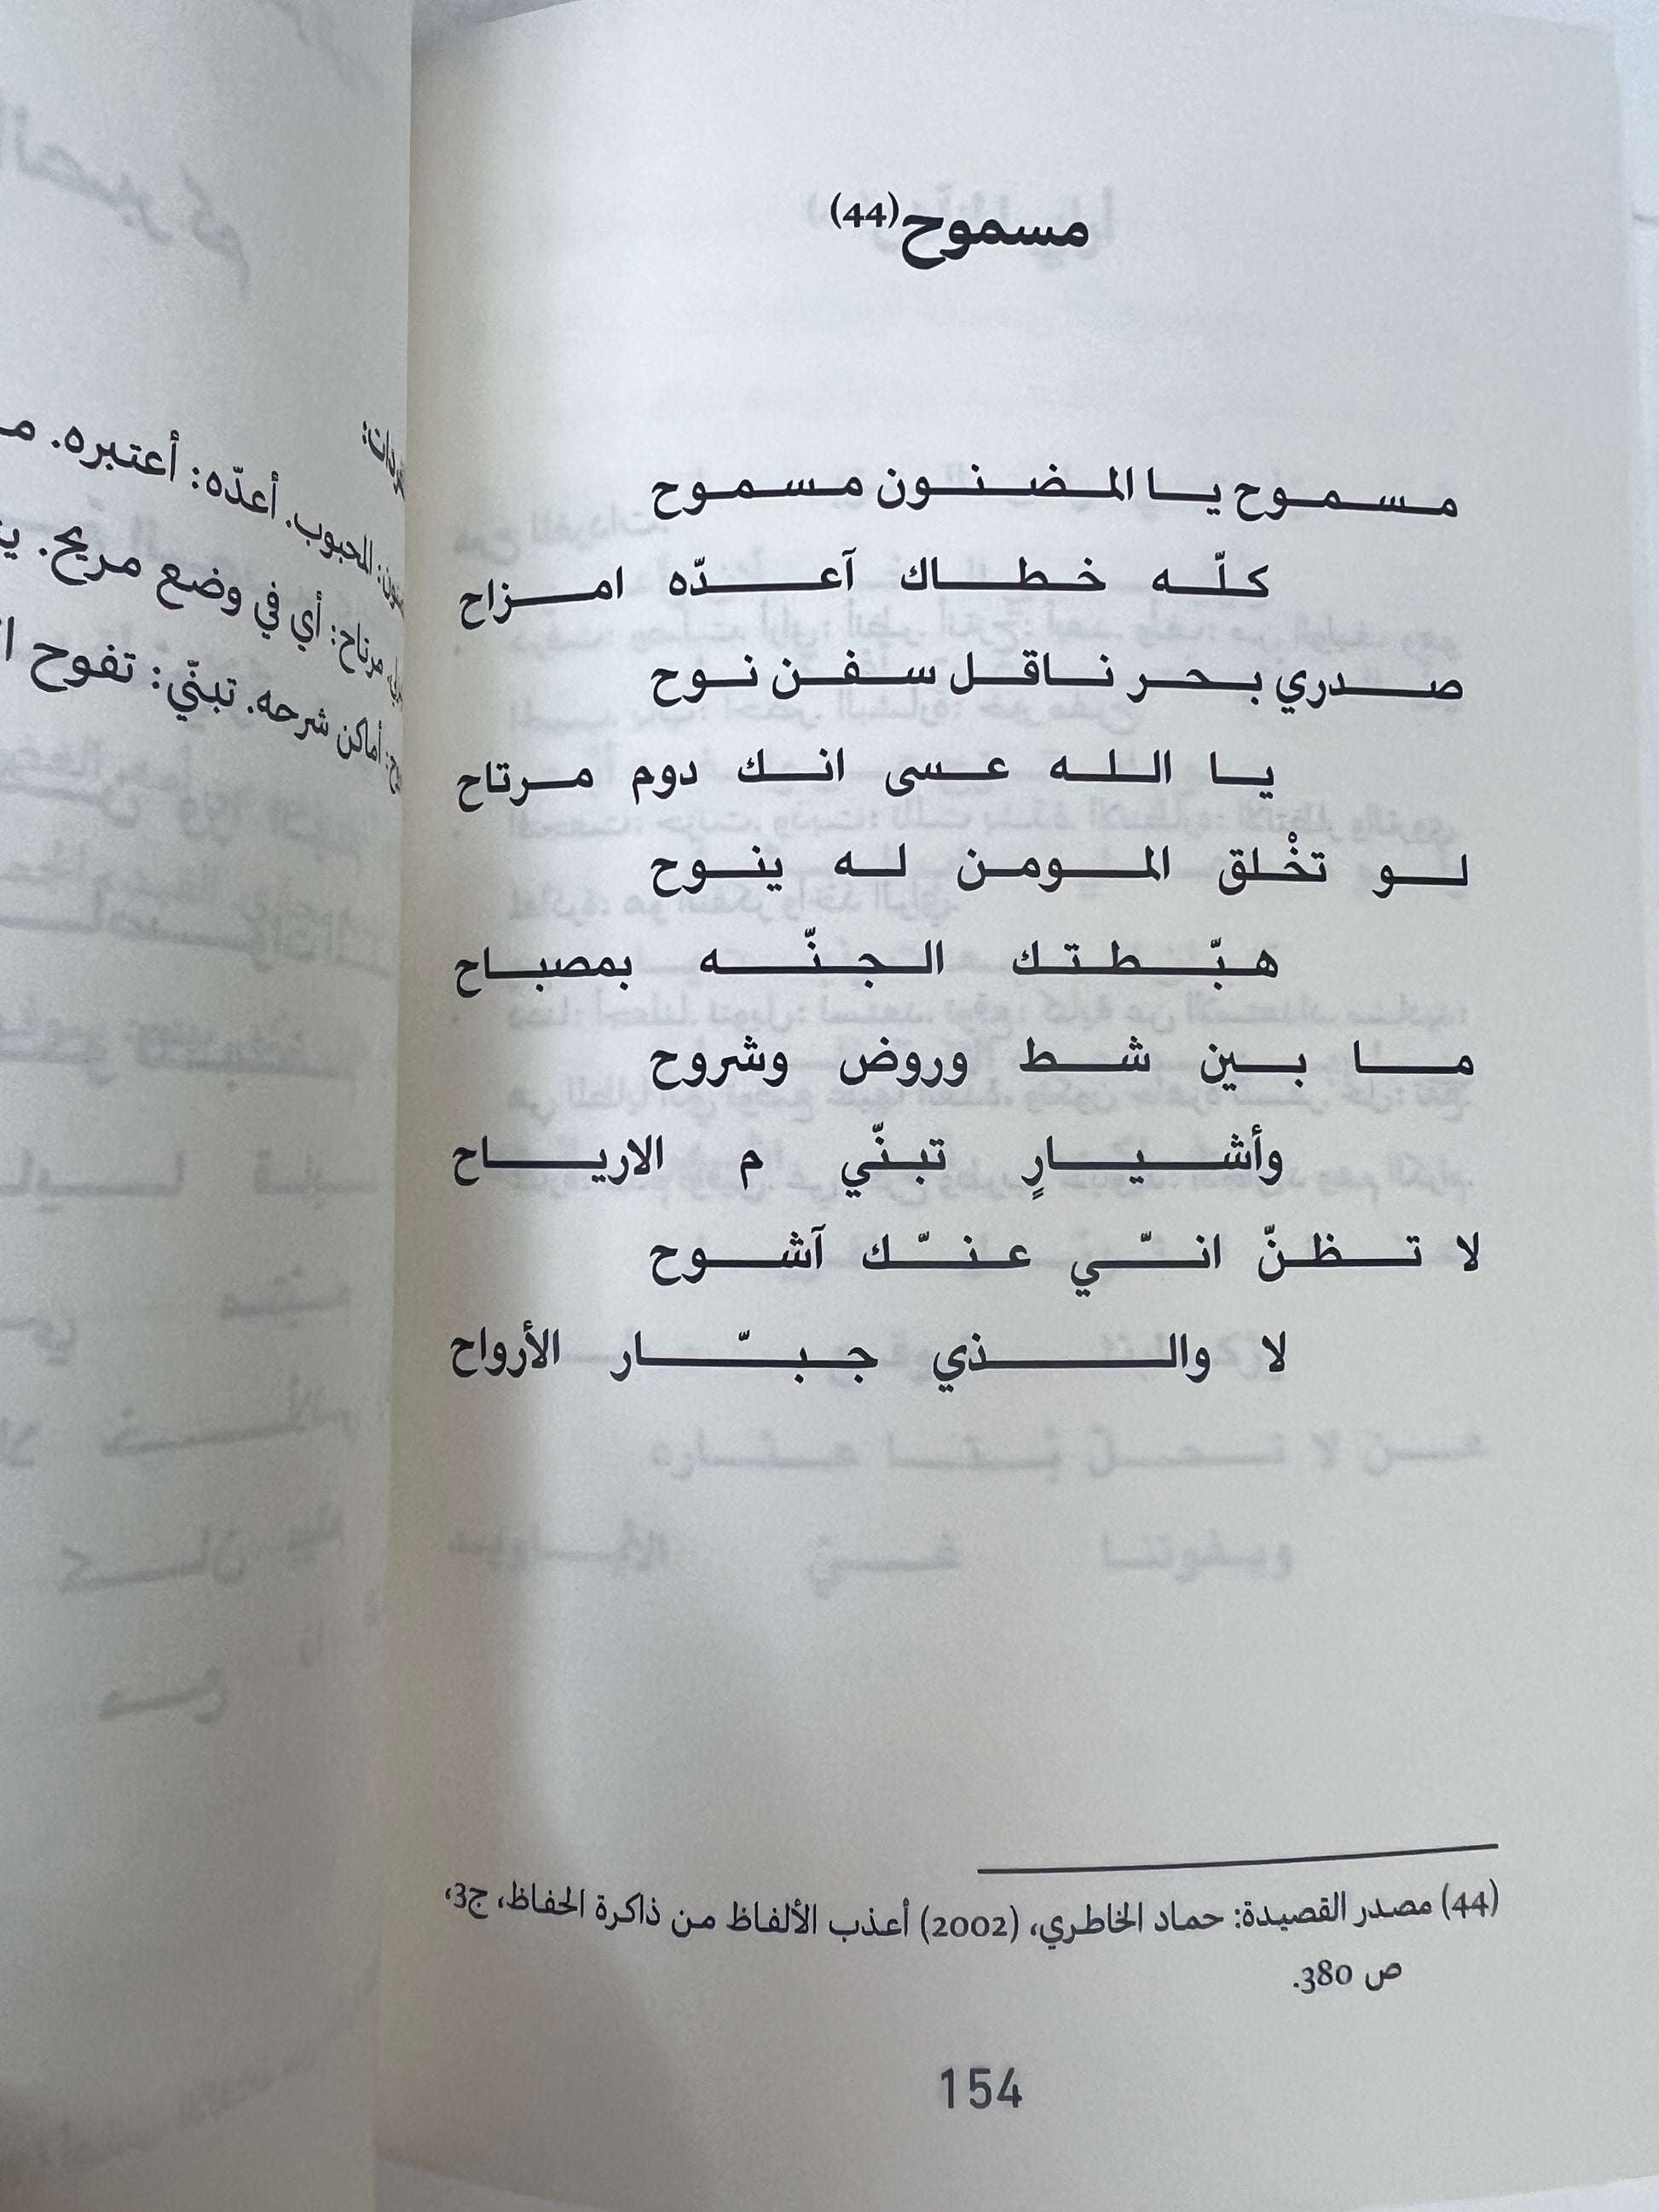 مسموح(44)
مسموح يا المضنون مسموح
كلّه خطاك آعدّه امزاح
صدري بحر ناقل سفن نوح
يا الله عسى انك دوم مرتاح
لو تخْلق المومن له ينوح
هبّطتك الجنّه بمصباح
ما بين شط وروض وشروح
وأشيارٍ تبنّي م الارياح
لا تظنّ انّي عنّك آشوح
لا والذي جبّار الأرواح
(44) مصدر القصيدة: حماد الخاطري، (2002) أعذب الألفاظ من ذاكرة الحفاظ، ج3،
ص 380.
154
المحبوب. أعدّه: أعتبره.
مرتاح: أي في وضع مريح.
أماكن شرحه. تبنّي: تفوح